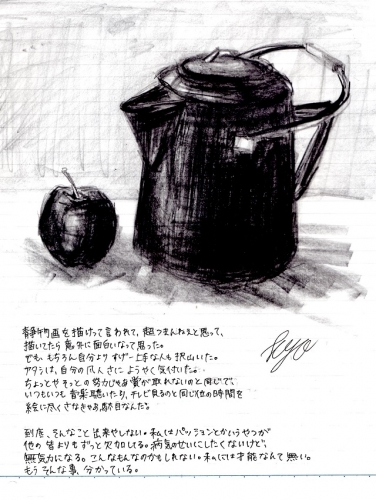 静物画を描けって言われて、超つまんねえと思って、
描いてたら意外に面白いなって思った。
でも、もちろん自分よりすげー上手な人も沢山いた。
アタシは、自分の凡人さに ようやく気付いた。
ちょっとや そっとの努力じゃ賞が取れないのと同じで、
いつもいつも音楽聴いたり、テレビ見るのと同じ位の時間を
絵に尽くさなきゃあ駄目なんだ。
到底、そんなこと出来やしない。私はパッションとかいうやつが
他の皆よりもずっと欠如してる。病気のせいにしたくないけど、
無気力になる。こんなもんなのかもしれない。私には才能なんて無い。
もうそんな事、分かっている。